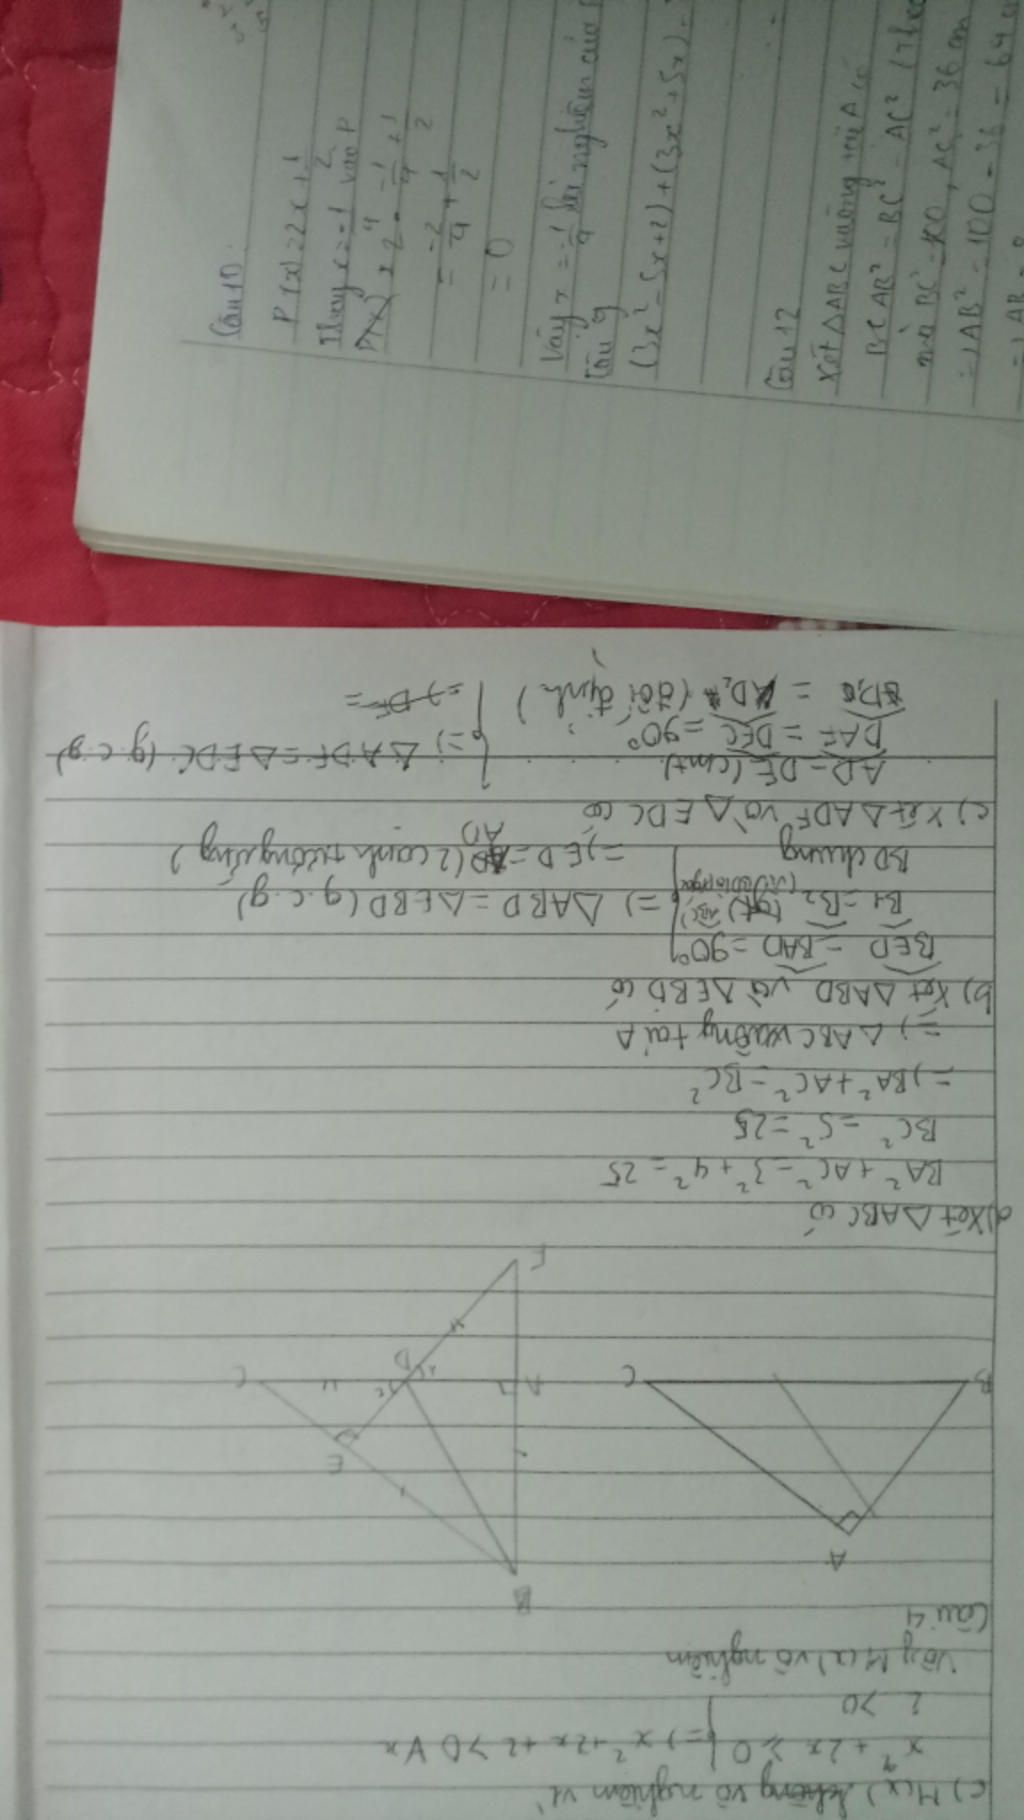 c) M(x) không vô nghiệm vì
x⁴ + 2x ≥ 0
2 > 0
=) x² + 2x + 2 > 0 ∀x
Vậy M(x) vô nghiệm
Câu 4
A
B
C
B
E
A
D
C
F
a) Xét △ABC có
BA² + AC² = 3² + 4² = 25
BC² = 5² = 25
=) BA² + AC² = BC²
=) △ABC vuông tại A
b) Xét △ABD và △EBD có
BED = BAD = 90°
B1 = B2
BD chung
=) △ABD = △EBD (g.c.g)
=) ED = AD (2 cạnh tương ứng)
c) Xét △ADF và △EDC có
AD = DE (cmt)
DAF = DEC = 90°
(đối đỉnh)
=) △ADF = △EDC (g.c.g)
=) DF =
Câu 10
P(x) = 2x + 1/2
Thay x = -1/4 vào P
2 . -1/4 + 1/2
= -2/4 + 1/2
= 0
Vậy x = -1/4 là nghiệm của
Câu 9
(3x² - 5x + 2) + (3x² + 5x)
Câu 12
Xét △ABC vuông tại A có
AB² = BC² - AC²
mà BC² = 100, AC² = 36 cm
=) AB² = 100 - 36 = 64
=) AB =